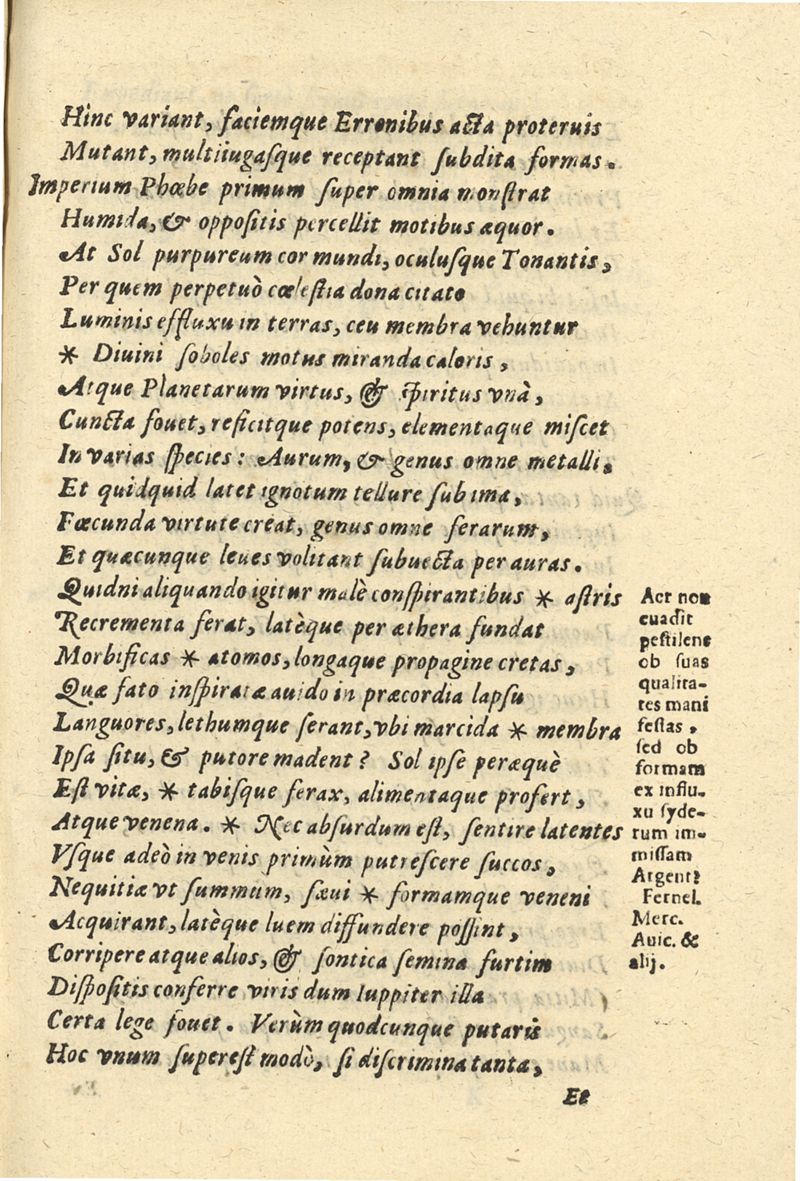 Hinc variant, faciemque Erronibus acta proteruis
Mutant, multiiugaſque receptant ſubdita formas.
Imperium Phœbe primum ſuper omnia monſtrat
Humida, & oppoſitis percellit motibus æquor.
At Sol purpureum cor mundi, oculuſque Tonantis,
Per quem perpetuò cœleſtia dona citato
Luminis effluxu in terras, ceu membra vehuntur
* Diuini ſoboles motus miranda caloris,
Atque Planetarum virtus, & ſpiritus vnà,
Cuncta fouet, reficitque potens, elementaque miſcet
In varias ſpecies: Aurum, & genus omne metalli.
Et quidquid latet ignotum tellure ſub ima,
Fœcunda virtute creat, genus omne ferarum,
Et quæcunque leues volitant ſubuecta per auras.
Quidni aliquando igitur malè conſpirantibus * aſtris
Recrementa ferat, latèque per æthera fundat
Morbificas * atomos, longaque propagine cretas,
Quæ fato inſpiratæ auido in præcordia lapſu
Languores, lethumque ferant, vbi marcida * membra
Ipſa ſitu, & putore madent? Sol ipſe peræquè
Eſt vitæ, * tabiſque ferax, alimentaque profert,
Atque venena. * Nec abſurdum eſt, ſentire latentes
Vſque adeò in venis primùm putreſcere ſuccos,
Nequitiæ vt ſummum, ſæui * formamque veneni
Acquirant, latèque luem diffundere poſſint,
Corripere atque alios, & ſontica ſemina furtim
Diſpoſitis conferre viris dum Iuppiter illa
Certa lege fouet. Verùm quodcunque putaris
Hoc vnum ſupereſt modò, ſi diſcrimina tanta,
Et
Aer non
euadit
peſtilens
ob ſuas
qualita-
tes mani
feſtas,
ſed ob
formam
ex influ-
xu ſyde-
rum im-
miſſam
Argent:
Fernel.
Merc.
Auic. &
alij.